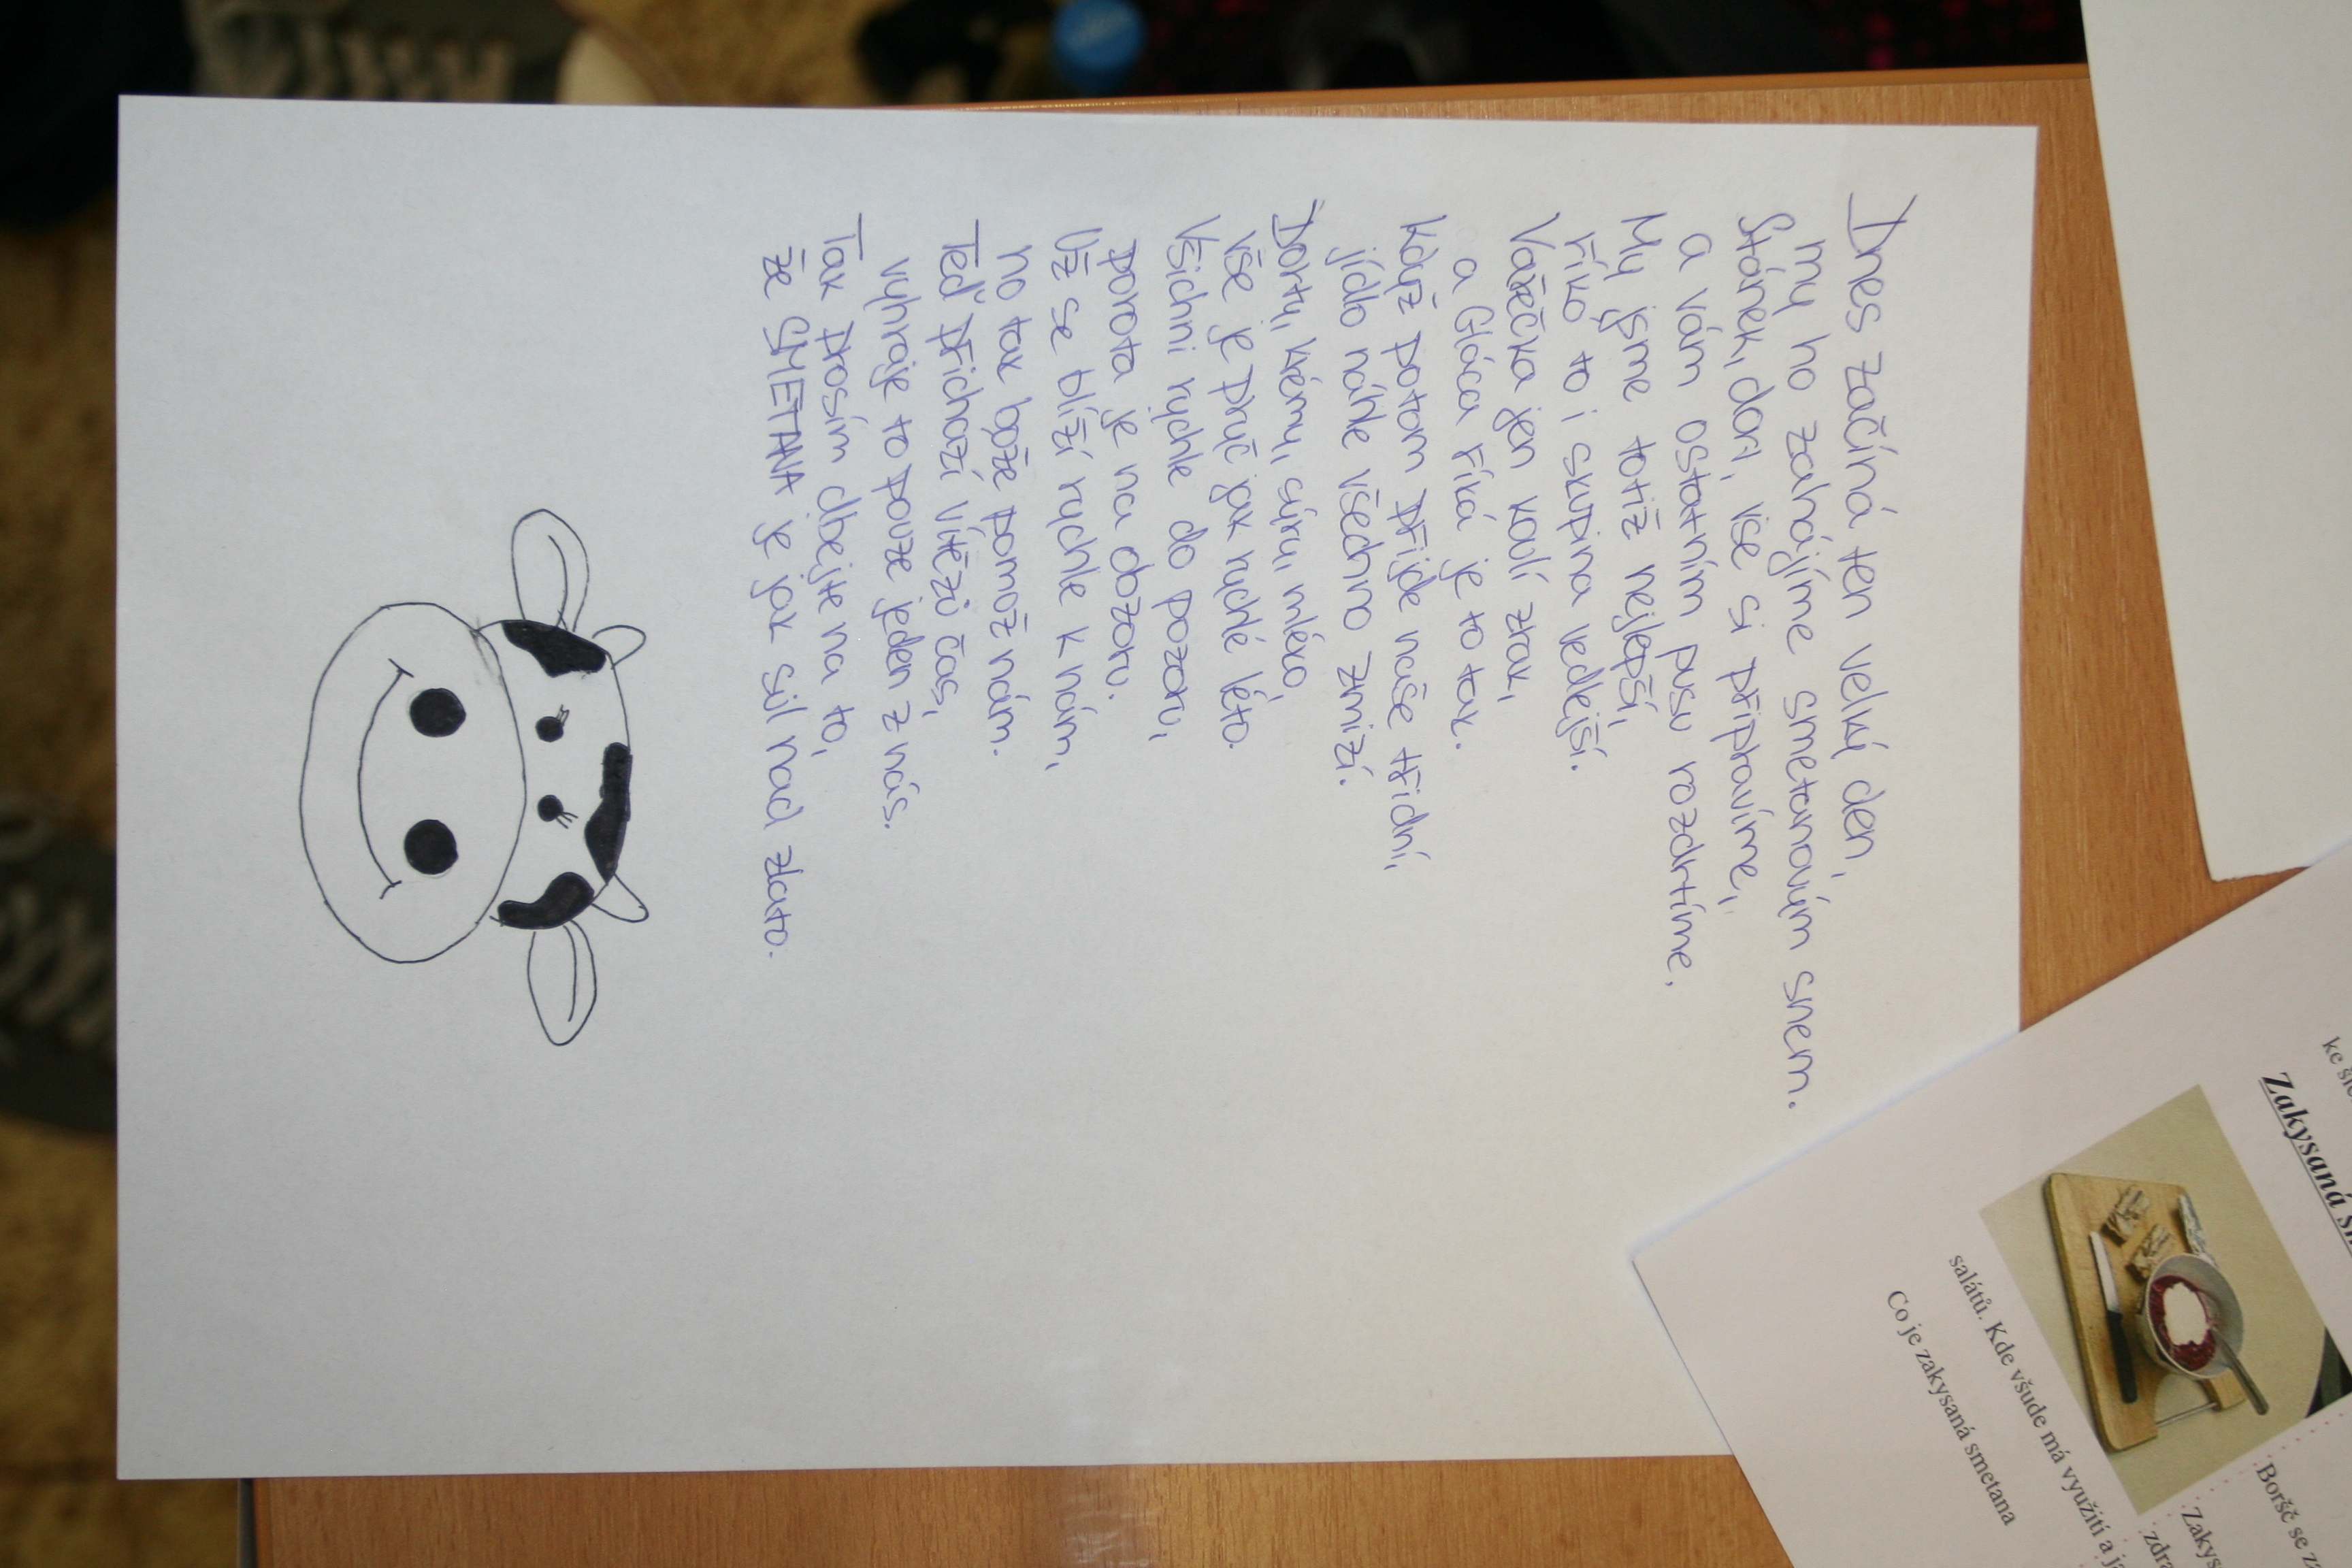 Dnes začíná ten velký den,
my ho zahájíme smetanovým snem.
Stánek, dort, vše si připravíme,
a vám ostatním pusu rozdrtíme.
My jsme totiž nejlepší,
říká to i skupina vedlejší.
Vařečka jen kalí zrak,
a Gláca říká je to tak.
Když potom přijde naše třídní,
jídlo náhle všechno zmizí.
Dorty, krémy, sýry, mléko,
vše je pryč jak rychlé léto.
Všichni rychle do pozoru,
porota je na obzoru.
Už se blíží rychle k nám,
no tak bože pomož nám.
Teď přichází vítězů čas,
vyhraje to pouze jeden z nás.
Tak prosím dbejte na to,
že SMETANA je jak sůl nad zlato.
Zakysaná
Boršč se
salátů. Kde všude má využití a
Co je zakysaná smetana